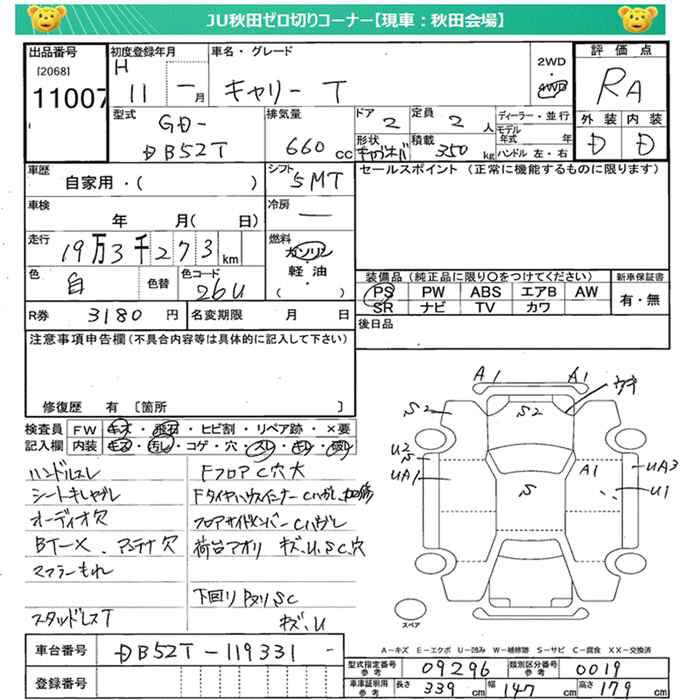 JU秋田ゼロ切りコーナー【現車：秋田会場】
出品番号
[2068]
11007
初度登録年月
H 11 - 月
車名・グレード
キャリー T
2WD
・
4WD
評価点
RA
外装 内装
D D
型式
GD-
DB52T
排気量
660 cc
ドア
2
定員
2 人
形状
積載
350 kg
ディーラー・並行
モデル年式 年
ハンドル 左・右
車歴
自家用・( )
シフト
5MT
セールスポイント (正常に機能するものに限ります)
車検
年 月( 日)
冷房
-
走行
19万3千273km
燃料
ガソリン
軽・油
( )
色
白
色替
色コード
26U
装備品 (純正品に限り〇をつけてください)
PS PW ABS エアB AW
SR ナビ TV カワ
新車保証書
有・無
R券 3180 円
名変期限 月 日
後日品
注意事項申告欄(不具合内容等は具体的に記入して下さい)
修復歴 有 [箇所 ]
検査員 FW キズ・飛石・ヒビ割・リペア跡・×要
記入欄 内装 キズ・汚れ・コゲ・穴・スレ・キレ・破れ
ハンドルスレ
シートキレヤブレ
オーディオ欠
BT-X、アンテナ欠
マフラーもれ
スタッドレスT
FフロアC穴大
FタイヤハウスインナーCハガレ
フロアサイドメンバーCハガレ
荷台アオリ キズ、U、SC穴
下回りPスリSC
キズ、U
A1 A1
ウキ
S2 S2
U2
S
UA1
S
A1
UA3
U1
スペア
A-キズ E-エクボ U-凹み W-補修跡 S-サビ C-腐食 XX-交換済
車台番号 DB52T-119331-
登録番号
型式指定番号 参考 09296
類別区分番号 参考 0019
車庫証明用 参考 長さ 339 cm 幅 147 cm 高さ 179 cm